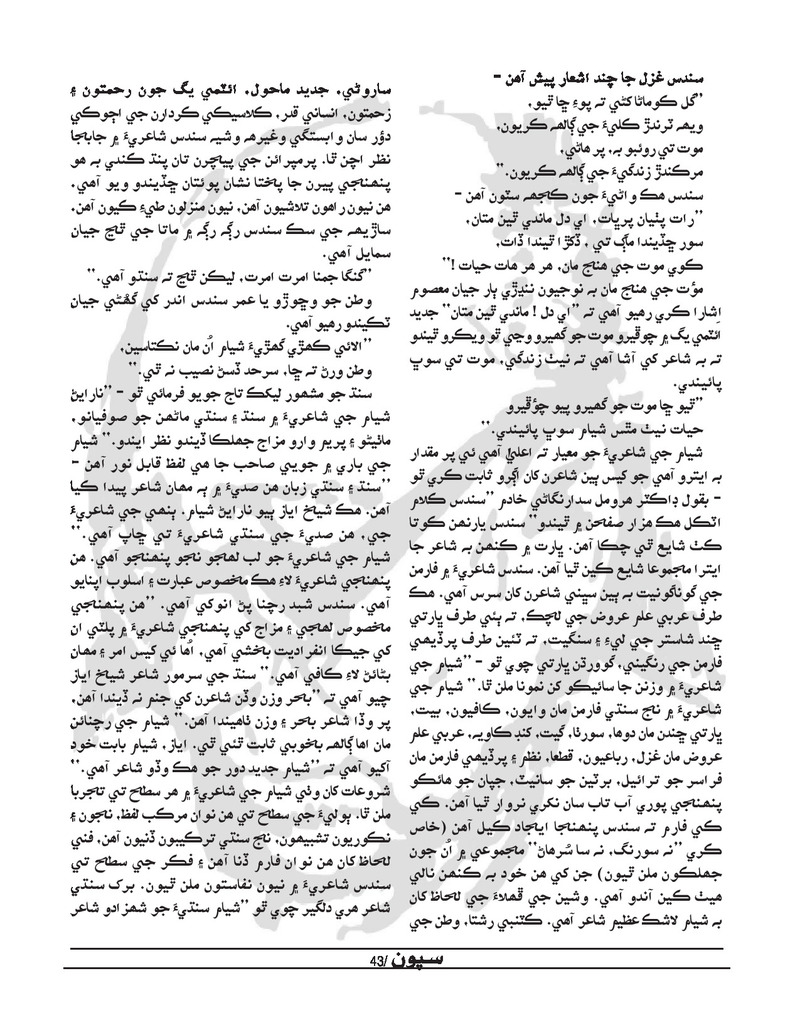 سندس غزل جا چند اشعار پيش آهن –
”گل ڪوماڻا ڪٿي ته پوءِ ڇا ٿيو،
ويهه ٽرندڙ ڪليءَ جي ڳالهه ڪريون،
موت تي روئبو به، پر هاڻي،
مرڪندڙ زندگيءَ جي ڳالهه ڪريون.“
سندس هڪ وائيءَ جون ڪجهه سٽون آهن –
”رات پٺيان پرڀات، اي دل ماندي ٿين متان،
سور ڇڏيندا ماڳ تي، ڏکڙا ٿيندا ڏات،
ڪوي موت جي هنج مان، هر هر هات حيات !“
مؤت جي هنج مان به نوجيون ننڍڙي ٻار جيان معصوم
اِشارا ڪري رهيو آهي ته ”اي دل ! ماندي ٿين متان“ جديد
ائٽمي يگ ۾ چوڦيرو موت جو گهيرو وڃي ٿو ويڪرو ٿيندو
ته به شاعر کي آشا آهي ته نيٺ زندگي، موت تي سوڀ
پائيندي.
”ٿيو ڇا موت جو گهيرو پيو چؤڦيرو
حيات نيٺ مٿس شيام سوڀ پائيندي.“
شيام جي شاعريءَ جو معيار ته اعليٰ آهي ئي پر مقدار
به ايترو آهي جو کيس ٻين شاعرن کان اڳرو ثابت ڪري ٿو
– بقول ڊاڪٽر هرومل سدارنگاڻي خادم ”سندس ڪلام
اٽڪل هڪ هزار صفحن ۾ ٿيندو“ سندس ٻارنهن کو تا
ڪٿ شايع ٿي چڪا آهن. ڀارت ۾ ڪنهن به شاعر جا
ايترا مجموعا شايع ڪين ٿيا آهن. سندس شاعريءَ ۾ فارمن
جي گوناگونيت به ٻين سڀني شاعرن کان سرس آهي. هڪ
طرف عربي علم عروض جي لچڪ، ته ٻئي طرف ڀارتي
ڇند شاستر جي ليءِ ۽ سنگيت، ته ٽئين طرف پرڏيهي
فارمن جي رنگيني، گوورڌن ڀارتي چوي ٿو – ”شيام جي
شاعريءَ ۾ وزنن جا سائيڪو کن نمونا ملن ٿا.“ شيام جي
شاعريءَ ۾ نج سنڌي فارمن مان وايون، ڪافيون، بيت،
ڀارتي ڇندن مان دوها، سورٺا، گيت، کنڊ ڪاويه، عربي علم
عروض مان غزل، رباعيون، قطعا، نظم ۽ پرڏيهي فارمن مان
فراسر جو ترائيل، برٽين جو سانيٽ، جپان جو هائڪو
پنهنجي پوري آب تاب سان نکري نروار ٿيا آهن. ڪي
ڪي فارم ته سندس پنهنجا ايجاد ڪيل آهن (خاص
ڪري ”نه سورنگ، نه سا سُرهاڻ“ مجموعي ۾ اُن جون
جهلڪون ملن ٿيون) جن کي هن خود به ڪنهن نالي
هيٺ ڪين آندو آهي. وشين جي ڦهلاءَ جي لحاظ کان
به شيام لاشڪ عظيم شاعر آهي. ڪٽنبي رشتا، وطن جي
ساروڻي، جديد ماحول، ائٽمي يگ جون رحمتون ۽
زحمتون، انساني قدر، ڪلاسيڪي ڪردارن جي اڄوڪي
دؤر سان وابستگي وغيره وشيه سندس شاعريءَ ۾ جابجا
نظر اچن ٿا. پرمپرائن جي پيچرن تان پنڌ ڪندي به هو
پنهنجي پيرن جا پختا نشان پوئتان ڇڏيندو ويو آهي.
هن نيون راهون تلاشيون آهن، نيون منزلون طيءِ ڪيون آهن.
ساڙيهه جي سڪ سندس رڳه رڳه ۾ ماتا جي ٿڃ جيان
سمايل آهي.
”گنگا جمنا امرت امرت، ليڪن ٿڃ ته سنڌو آهي.“
وطن جو وڇوڙو يا عمر سندس اندر کي گهڻي جيان
ٽڪيندو رهيو آهي.
”الائي ڪهڙي گهڙيءَ شيام اُن مان نڪتاسين،
وطن ورڻ ته ڇا، سرحد ڏسڻ نصيب نه ٿي.“
سنڌ جو مشهور ليکڪ تاج جويو فرمائي ٿو – ”نارايڻ
شيام جي شاعريءَ ۾ سنڌ ۽ سنڌي ماڻهن جو صوفيانو،
ماٺيڻو ۽ پريم وارو مزاج جهلڪا ڏيندو نظر ايندو.“ شيام
جي باري ۾ جويي صاحب جا هي لفظ قابل نور آهن –
”سنڌ ۽ سنڌي زبان هن صديءَ ۾ ٻه مهان شاعر پيدا ڪيا
آهن. هڪ شيخ اياز ٻيو نارايڻ شيام. ٻنهي جي شاعريءَ
جي، هن صديءَ جي سنڌي شاعريءَ تي ڇاپ آهي.“
شيام جي شاعريءَ جو لب لهجو نجو پنهنجو آهي. هن
پنهنجي شاعريءَ لاءِ هڪ مخصوص عبارت ۽ اسلوب اپنايو
آهي. سندس شبد رچنا پڻ انوکي آهي. ”هن پنهنجي
مخصوص لهجي ۽ مزاج کي پنهنجي شاعريءَ ۾ پلٽي ان
کي جيڪا انفراديت بخشي آهي، اُها ئي کيس امر ۽ مهان
بڻائڻ لاءِ ڪافي آهي.“ سنڌ جي سرمور شاعر شيخ اياز
چيو آهي ته ”بحر وزن وڏن شاعرن کي جنم نه ڏيندا آهن،
پر وڏا شاعر بحر ۽ وزن ٺاهيندا آهن.“ شيام جي رچنائن
مان اها ڳالهه بخوبي ثابت ٿئي ٿي. اياز، شيام بابت خود
آکيو آهي ته ”شيام جديد دور جو هڪ وڏو شاعر آهي.“
شروعات کان وٺي شيام جي شاعريءَ ۾ هر سطح تي تجربا
ملن ٿا. ٻوليءَ جي سطح تي هن نوان مرڪب لفظ، نجون ۽
نڪوريون تشبيهون، نج سنڌي ترڪيبون ڏنيون آهن، فني
لحاظ کان هن نوان فارم ڏنا آهن ۽ فڪر جي سطح تي
سندس شاعريءَ ۾ نيون نفاستون ملن ٿيون. برک سنڌي
شاعر هري دلگير چوي ٿو ”شيام سنڌيءَ جو شهزادو شاعر
سپون /43